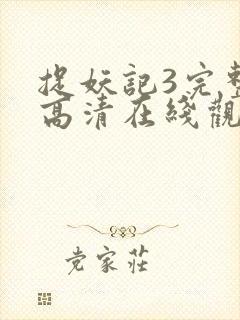 捉妖記3完整
高清在綫觀
党家莊